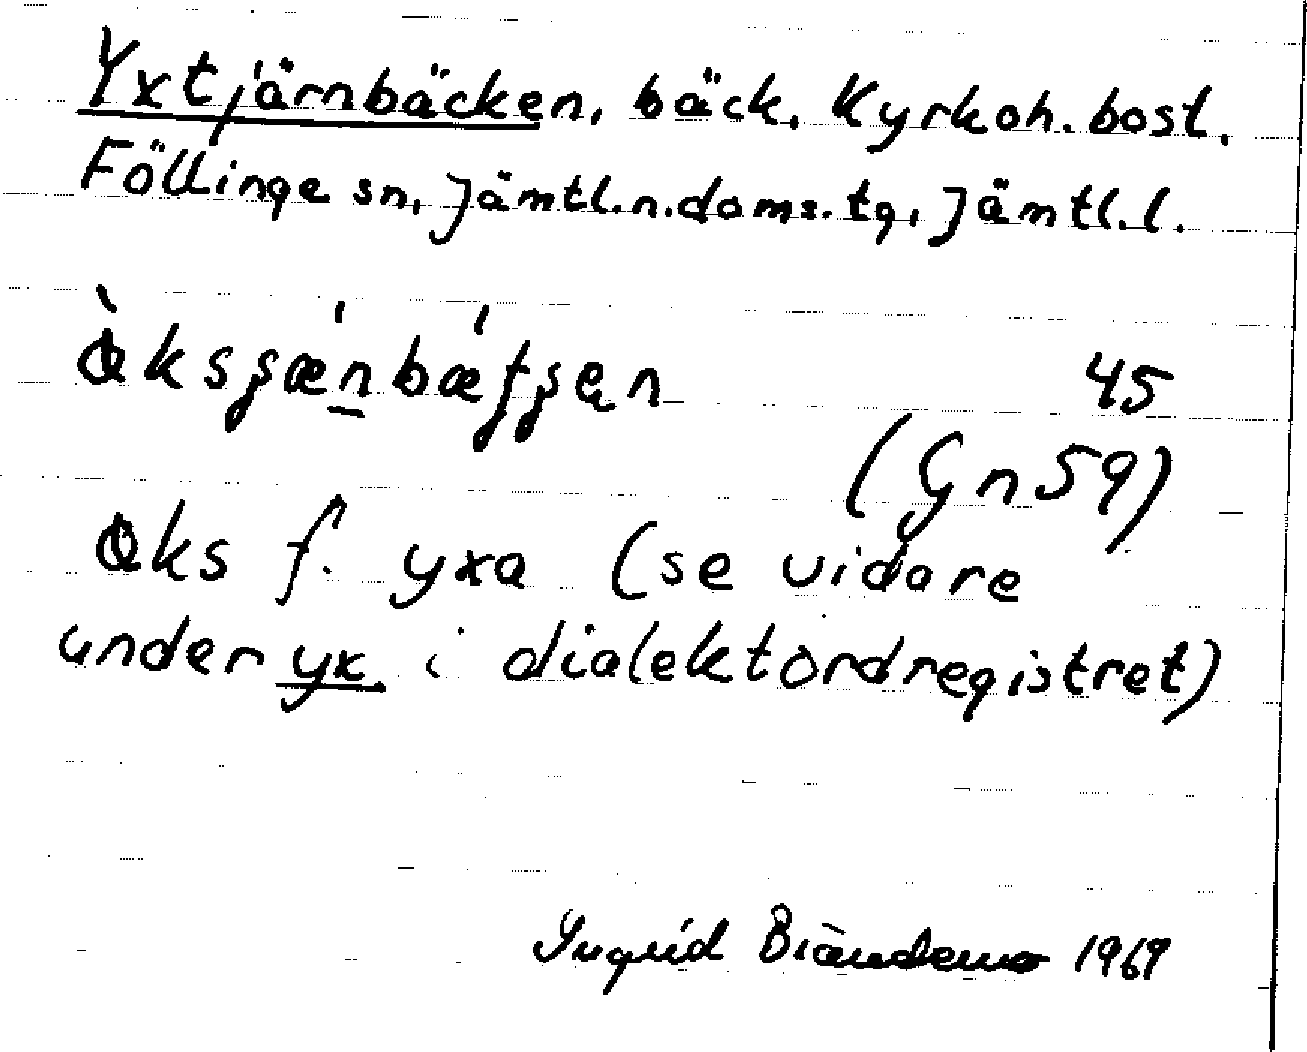 Yxtjärnbäcken, bäck. Kyrkoh. bost.
Föllinge sn, Jämtl.n.doms.tg, Jämtl.l.
45
(Gn 59)
f. yxa (se vidare
under yx i dialektordregistret)
Ingrid 1969